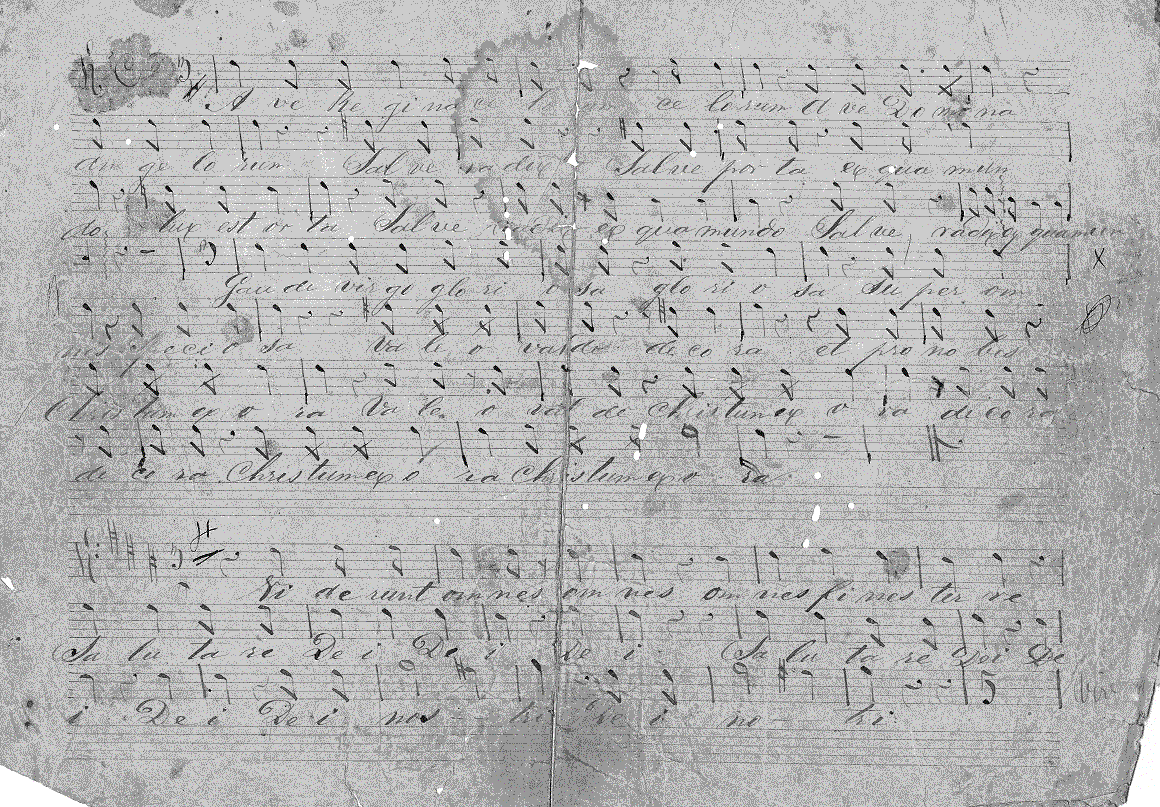 A ve Re gi na ce lo rum ce lorum A ve Do mi na
an ge lo rum Sal ve radix Salve por ta ex qua mun
do lux est or ta Sal ve radix ex qua mundo Sal ve radix ex qua mun
Gau de virgo glo ri o sa glo ri o sa su per om
nes specio sa Va le o valde de co ra et pro no bis
Christum ex o ra Va le o val de Christum ex o ra de co ra
de co ra Christum ex o ra Christum ex o ra
Vi de runt omnes om nes om nes fi nes ter re
Sa lu ta re De i De i De i Sa lu ta re Dei De
i De i De i nos tri De i no tri